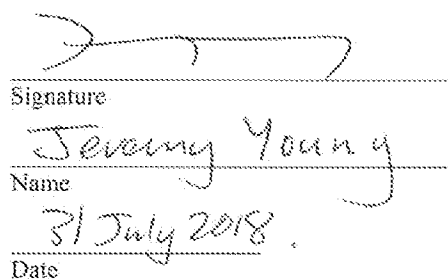 Signature
Jeremy Young
Name
31 July 2018.
Date